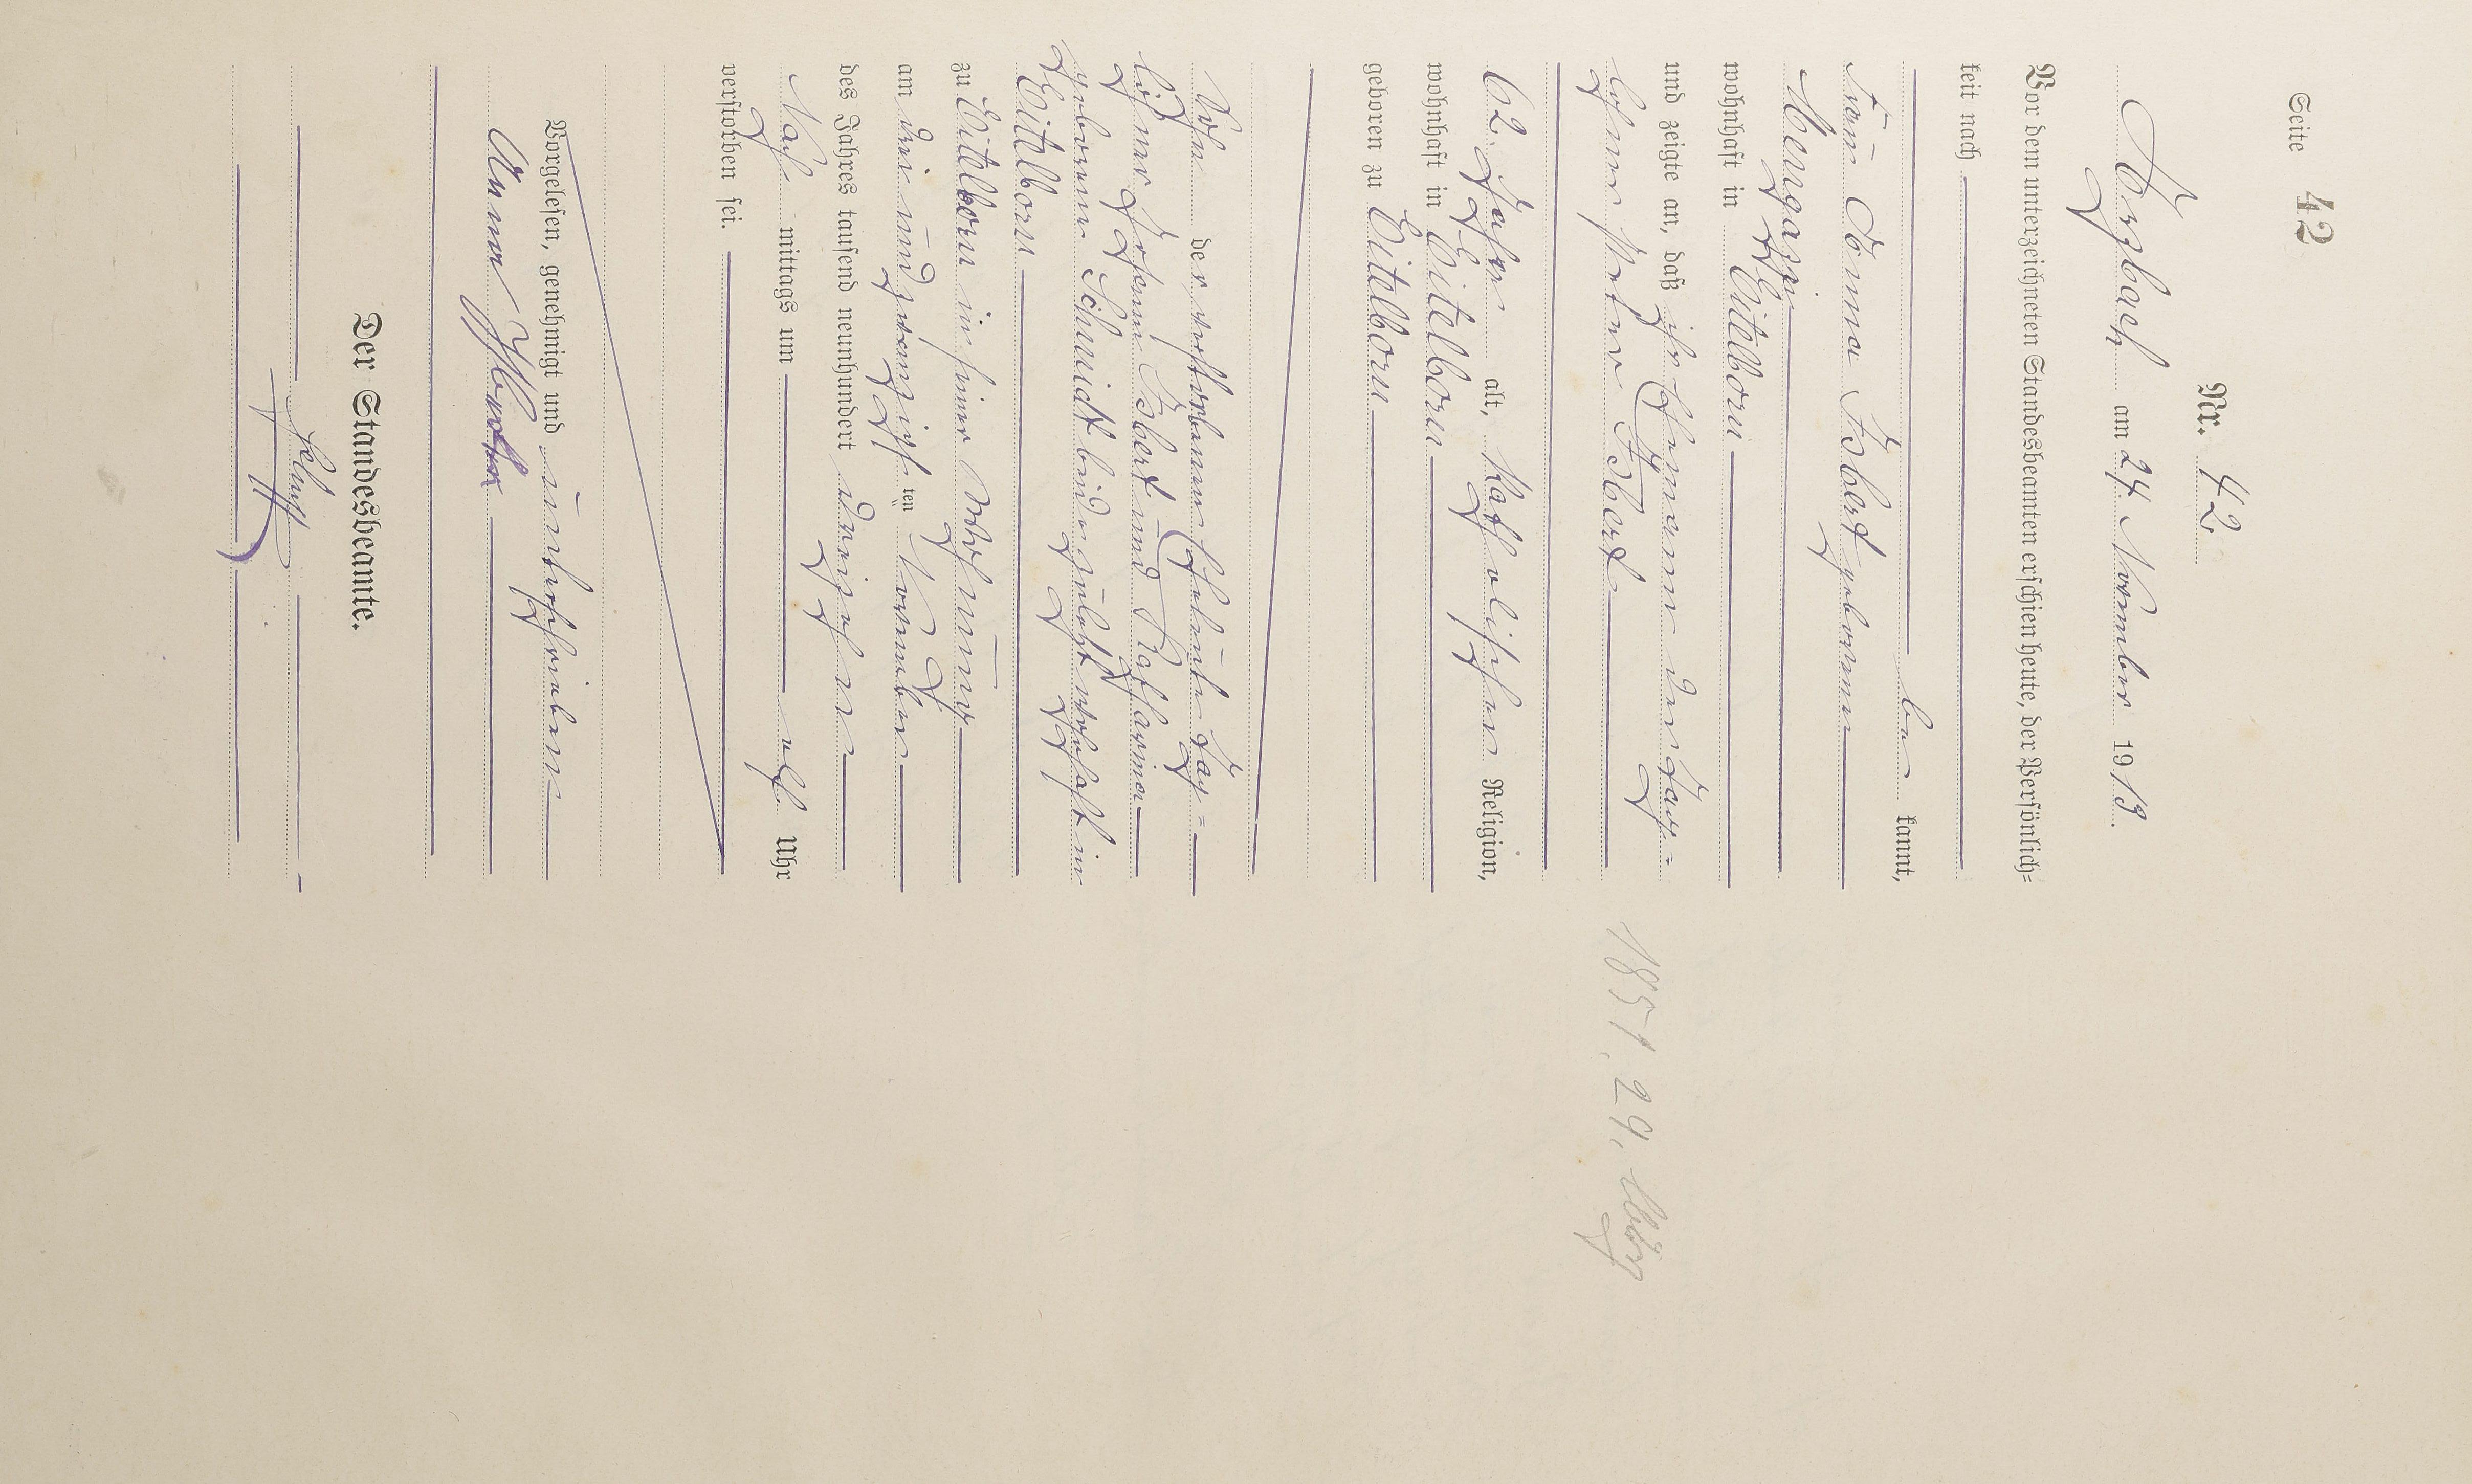 Seite 42
Nr. 42
Arzbach am 24. November 1913.
Vor dem unterzeichneten Standesbeamten erschien heute, der Persönlich=
keit nach
be kannt,
Frau Anna Isbert geborene
Mengassi
wohnhaft in Eitelborn
und zeigte an, daß ihr Ehemann der Tag=
löhner Peter Isbert
1851, 29,
62 Jahre alt, katholischer Religion,
wohnhaft in Eitelborn
geboren zu Eitelborn
Sohn der verstorbenen Eheleute Tag=
löhner Johann Isbert und Katharina
geborene Schmidt beide zuletzt wohnhaft in
Eitelborn
zu Eitelborn in seiner Wohnung
am drei und zwanzigsten November
des Jahres tausend neunhundert dreizehn
Nach mittags um elf Uhr
verstorben sei.
Vorgelesen, genehmigt und unterschrieben
Anna
Der Standesbeamte.